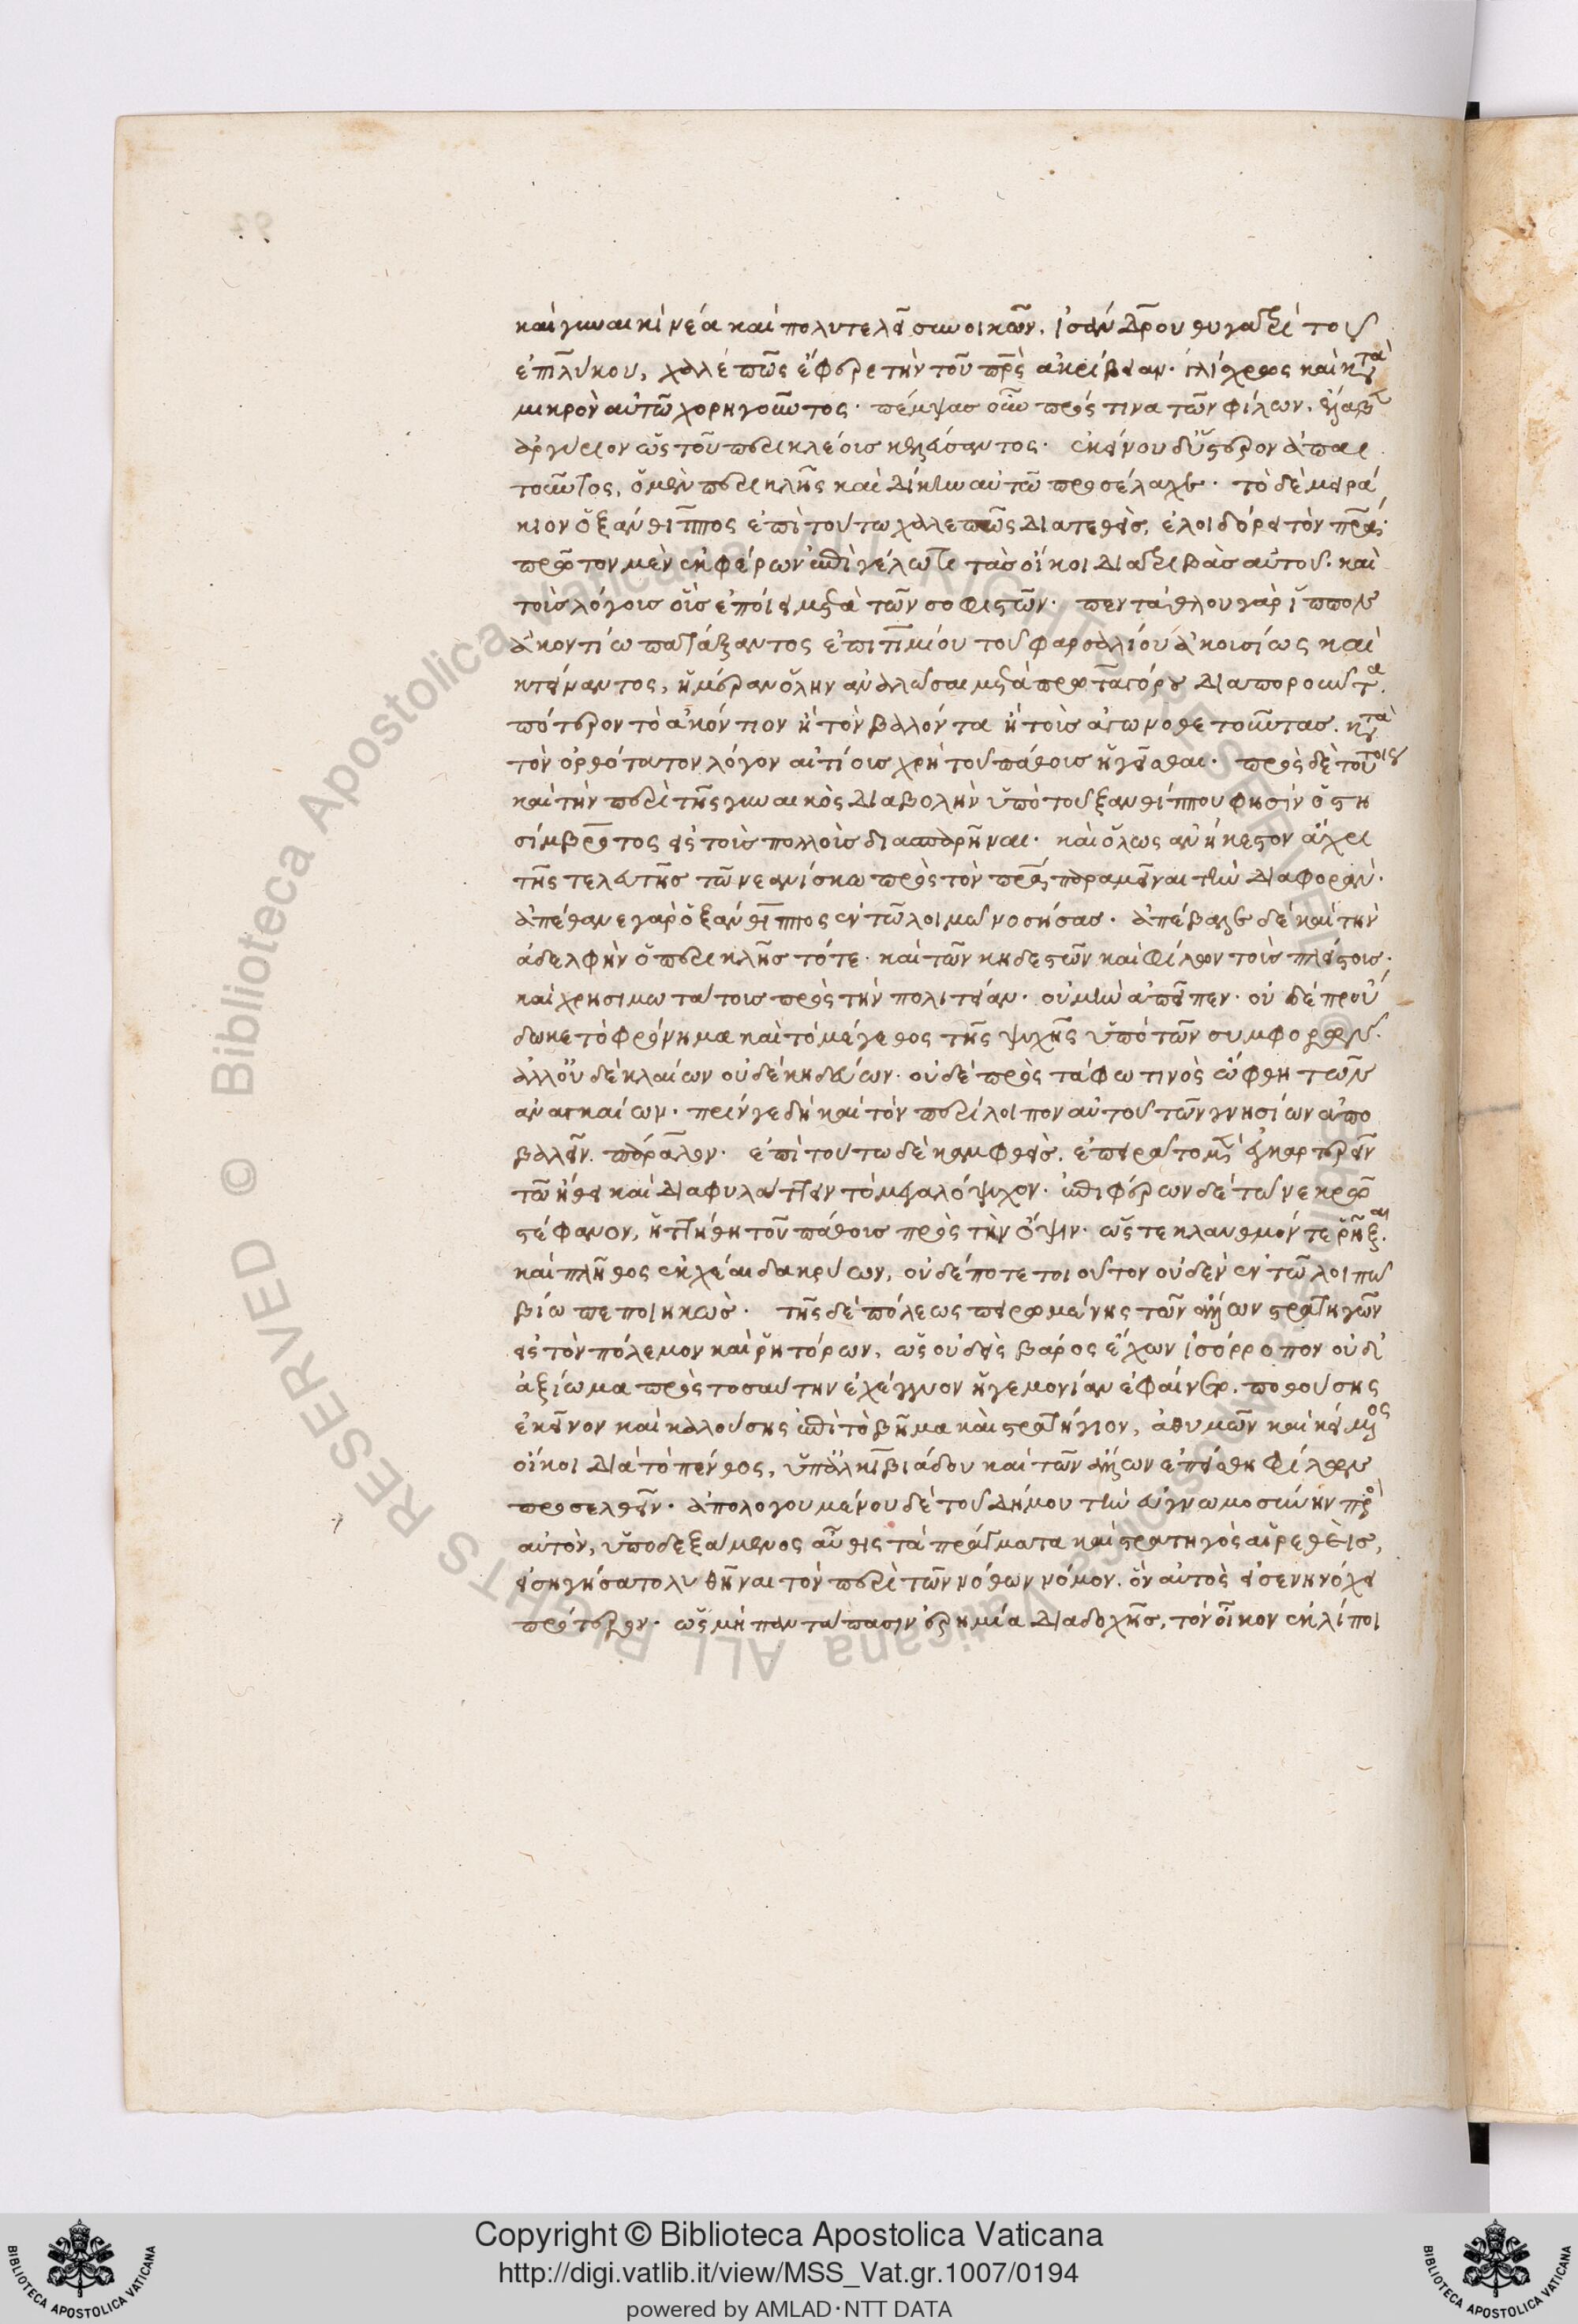 καὶ γυναικὶ νέα καὶ πολυτελεῖ συνοικῶν, ἰσάνδρου θυγατρὶ τοῦ
ἐπιλύκου, χαλεπῶς ἔφερε τὴν τοῦ πρς ἀκρίβειαν· γλίσχρως καὶ κατὰ
μικρὸν αὐτῶ χορηγοῦντος· πέμψας οὖν πρός τινα τῶν φίλων, ἔλαβεν
ἀργύριον ὡς τοῦ περικλέους κελεύσαντος· ἐκείνου δ' ὕστερον ἀπαι
τοῦντος, ὁ μὲν περικλῆς καὶ δίκην αὐτῶ προσέλαχε· τὸ δὲ μειρά
κιον ὁ ξάνθιππος ἐπὶ τούτω χαλεπῶς διατεθεὶς, ἐλοιδόρει τὸν πρα·
πρῶτον μὲν ἐκφέρων ἐπὶ γέλωτι τὰς οἴκοι διατριβὰς αὐτοῦ· καὶ
τοὺς λόγους οὓς ἐποίει μετὰ τῶν σοφιστῶν· πεντάθλου γὰρ ἵππον
ἀκοντίω πατάξαντος ἐπιτιμίου τοῦ φαρσαλίου ἀκουσίως καὶ
κτείναντος, ἡμέραν ὅλην ἀναλῶσαι μετὰ πρωταγόρου διαποροῦντα.
πότερον τὸ ἀκόντιον ἢ τὸν βαλόντα ἢ τοὺς ἀγωνοθετοῦντας. κατὰ
τὸν ὀρθότατον λόγον αἰτίους χρὴ τοῦ πάθους ἡγεῖσθαι· πρὸς δὲ τούτοις
καὶ τὴν περὶ τῆς γυναικὸς διαβολὴν ὑπὸ τοῦ ξανθίππου φησὶν ὁ στη
σίμβροτος εἰς τοὺς πολλοὺς διασπαρῆναι· καὶ ὅλως ἀνήκεστον ἄχρι
τῆς τελευτῆς τῶ νεανίσκω πρὸς τὸν πρα παραμεῖναι τὴν διαφοράν·
ἀπέθανε γὰρ ὁ ξάνθιππος ἐν τῶ λοιμῶ νοσήσας· ἀπέβαλε δὲ καὶ τὴν
ἀδελφὴν ὁ περικλῆς τότε· καὶ τῶν κηδεστῶν καὶ φίλων τοὺς πλείστους·
καὶ χρησιμωτάτους πρὸς τὴν πολιτείαν· οὐ μὴν ἀπεῖπεν· οὐδὲ πρού
δωκε τὸ φρόνημα καὶ τὸ μέγεθος τῆς ψυχῆς ὑπὸ τῶν συμφορῶν·
ἀλλ' οὐδὲ κλαίων οὐδὲ κηδεύων· οὐδὲ πρὸς τάφω τινὸς ὤφθη τῶν
ἀναγκαίων· πρίν γε δὴ καὶ τὸν περίλοιπον αὐτοῦ τῶν γνησίων ἀπο
βαλεῖν πάραλον· ἐπὶ τούτω δὲ καμφθεὶς. ἐπειρᾶτο μὲν ἐγκαρτερεῖν
τῶ ἤθει καὶ διαφυλάττειν τὸ μεγαλόψυχον· ἐπιφέρων δὲ τῶ νεκρῶ
στέφανον, ἡττήθη τοῦ πάθους πρὸς τὴν ὄψιν· ὥστε κλαυθμόν τε ῥῆξαι.
καὶ πλῆθος ἐκχέαι δακρύων, οὐδέποτε τοιοῦτον οὐδὲν ἐν τῶ λοιπῶ
βίω πεποιηκὼς· τῆς δὲ πόλεως πειρωμένης τῶν ἄλλων στρατηγῶν
εἰς τὸν πόλεμον καὶ ῥητόρων, ὡς οὐδεὶς βάρος ἔχων ἰσόρροπον οὐδ'
ἀξίωμα πρὸς τοσαύτην ἐχέγγυον ἡγεμονίαν ἐφαίνετο. ποθούσης
ἐκεῖνον καὶ καλούσης ἐπὶ τὸ βῆμα καὶ στρατήγιον, ἀθυμῶν καὶ κείμενος
οἴκοι διὰ τὸ πένθος, ὑπ' ἀλκιβιάδου καὶ τῶν ἄλλων ἐπείσθη φίλων
προσελθεῖν· ἀπολογουμένου δὲ τοῦ δήμου τὴν ἀγνωμοσύνην πρὸς
αὐτὸν, ὑποδεξάμενος αὖθις τὰ πράγματα καὶ στρατηγὸς αἱρεθεὶς,
εἰσηγήσατο λυθῆναι τὸν περὶ τῶν νόθων νόμον. ὃν αὐτὸς εἰσενηνόχει
πρότερον· ὡς μὴ παντάπασιν ἐρημία διαδοχῆς, τὸν οἶκον ἐκλίποι
Copyright © Biblioteca Apostolica Vaticana
http://digi.vatlib.it/view/MSS_Vat.gr.1007/0194
powered by AMLAD·NTT DATA